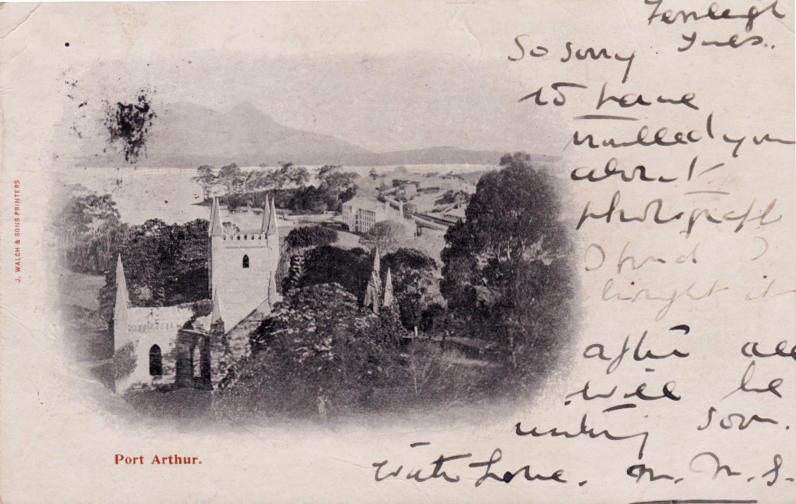 Fernleigh
Tues..
So sorry
to have
troubled you
about
photograph
I find I
brought it
after all
will be
writing soon.
With Love. M. M. S.
J. WALCH & SONS PRINTERS
Port Arthur.